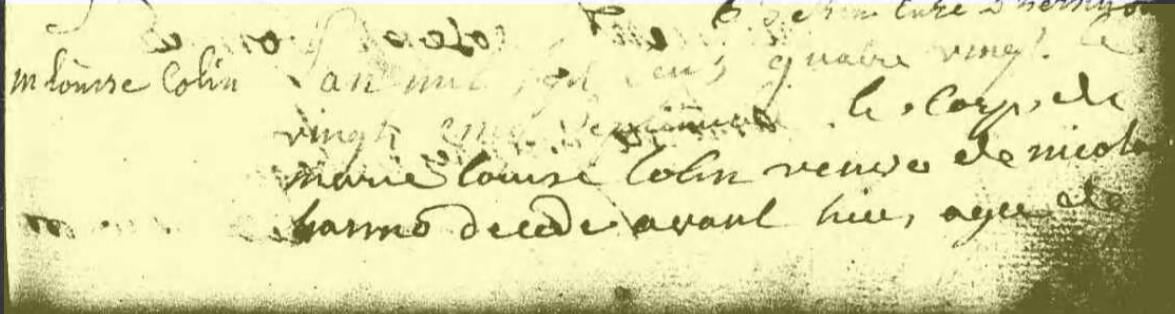 cure
m louise Colin
L'an mil sept cens quatre vingt le
vingt cinq le corps de
marie louise Colin veuve de nicolas
decede avant hier, agee de